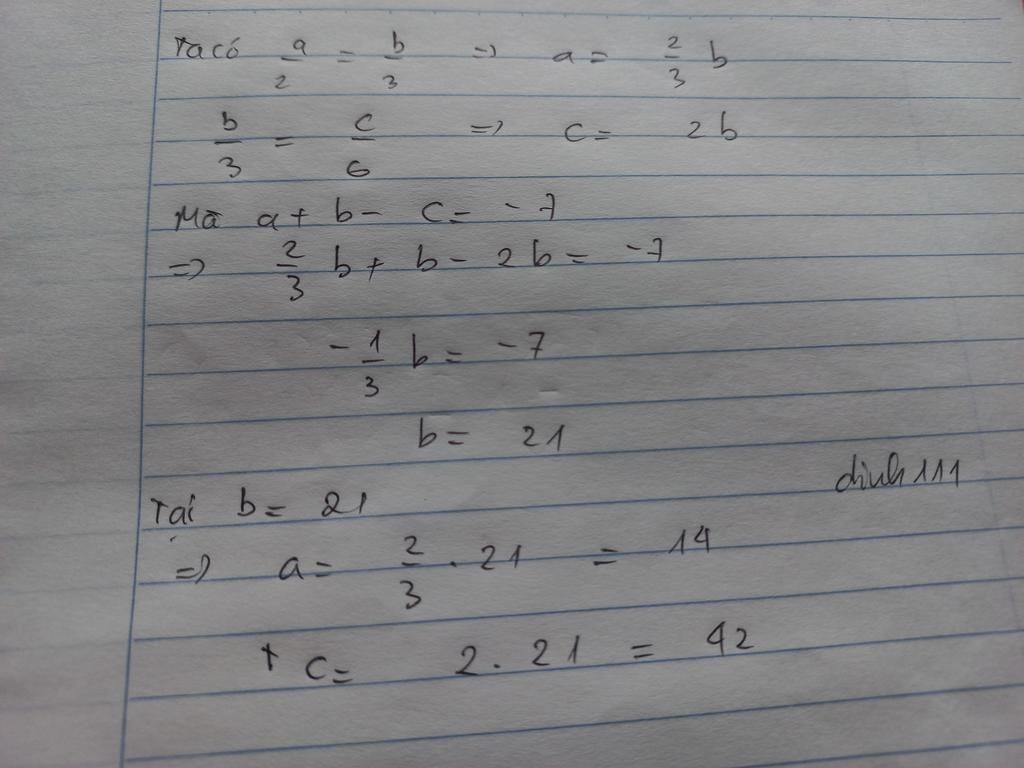 Ta có a/2 = b/3 => a = 2/3 b
b/3 = c/6 => c = 2b
Mà a + b - c = -7
=> 2/3 b + b - 2b = -7
-1/3 b = -7
b = 21
dinh111
Tại b = 21
=> a = 2/3 . 21 = 14
+ c = 2 . 21 = 42